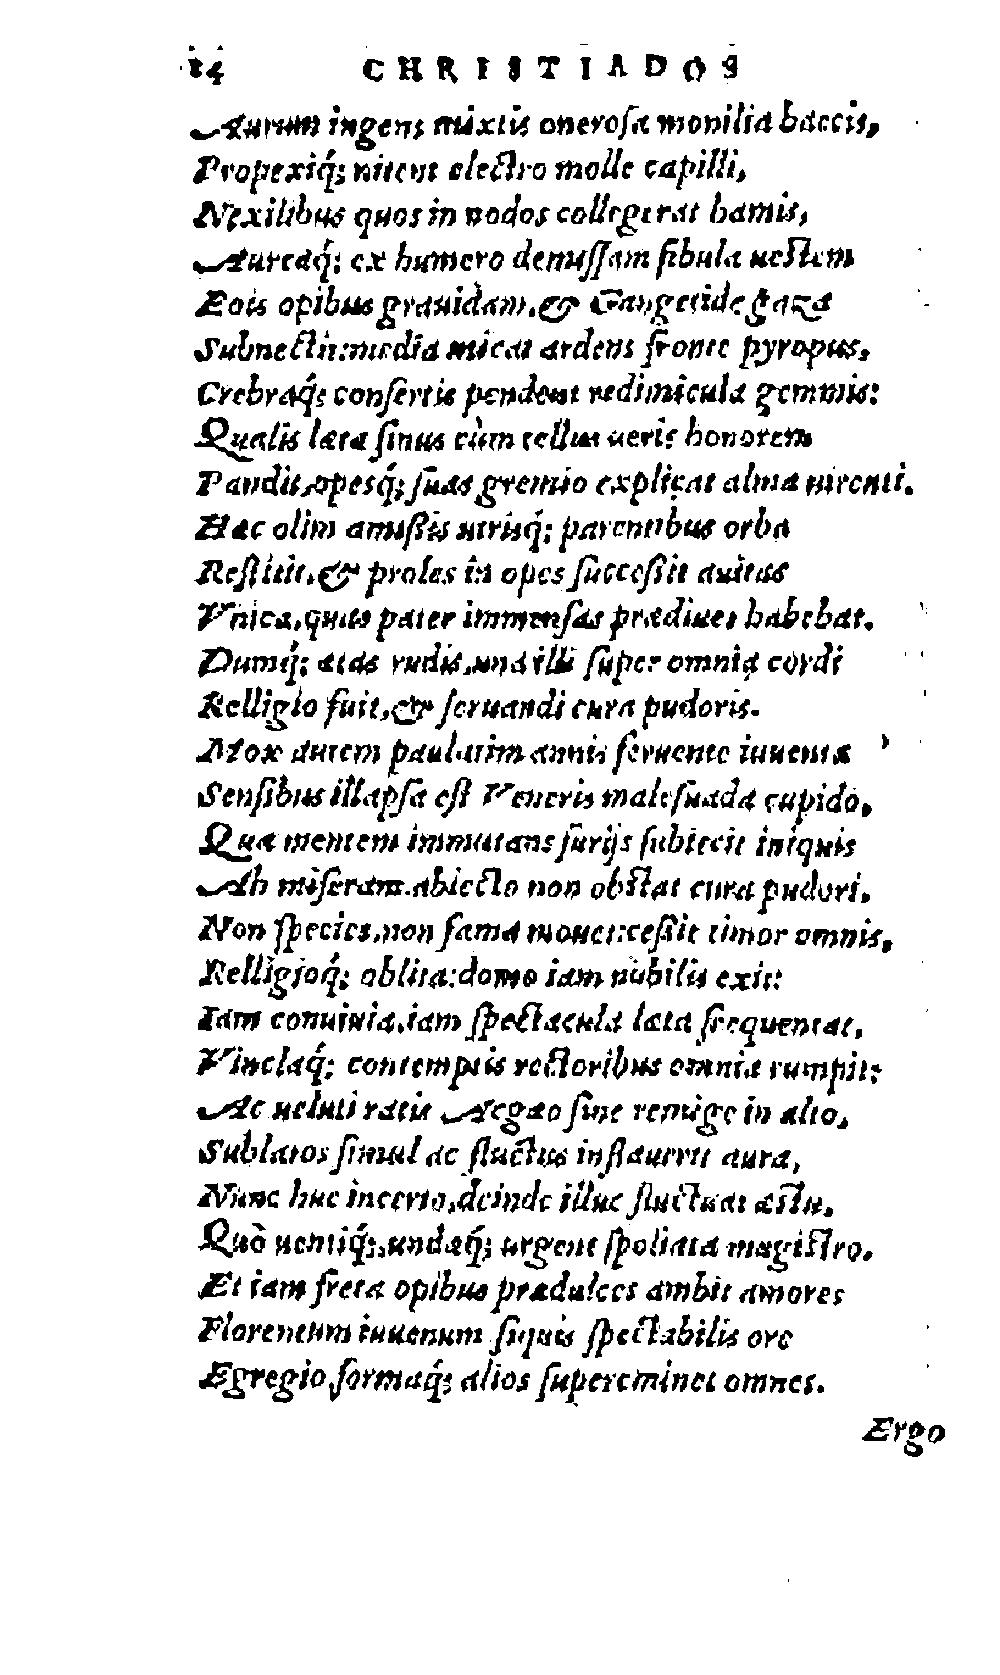 14 CHRISTIADOS
Aurum ingens mixtis onerosa monilia baccis,
Propexiq́; nitent electro molle capilli,
Nexilibus quos in nodos collegerat hamis,
Aureaq́; ex humero demissam fibula uestem
Eois opibus grauidam, & Gangetide gaza
Subnectit: media micat ardens fronte pyropus,
Crebraq́; consertis pendent redimicula gemmis:
Qualis læta sinus cùm tellus ueris honorem
Pandit, opesq́; suas gremio explicat alma nitenti.
Hæc olim amissis utrisq́; parentibus orba
Restitit, & proles in opes successit auitas
Vnica, quas pater immensas prædiues habebat.
Dumq́; ætas rudis, una illi super omnia cordi
Relligio fuit, & seruandi cura pudoris.
Mox autem paulatim annis feruente iuuenta
Sensibus illapsa est Veneris malesuada cupido,
Quæ mentem immutans furijs subiecit iniquis
Ah miseram. abiecto non obstat cura pudori,
Non species, non fama mouet: cessit timor omnis,
Relligioq́; oblita: domo iam nubilis exit:
Iam conuiuia, iam spectacula læta frequentat,
Vinclaq́; contemptis rectoribus omnia rumpit:
Ac ueluti ratis Aegæo sine remige in alto,
Sublatos simul ac fluctus inflauerit aura,
Nunc huc incerto, deinde illuc fluctuat æstu,
Quò uentiq́;, undæq́; urgent spoliata magistro.
Et iam freta opibus prædulces ambit amores
Florentum iuuenum siquis spectabilis ore
Egregio, formaq́; alios supereminet omnes.
Ergo